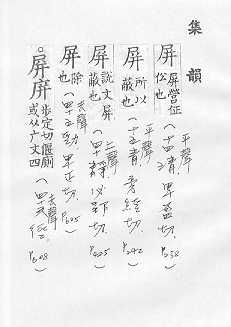 集韻
屏 屏營征伀也 (十四清 卑盈切 P238) 平聲
屏 所以蔽也 (十五青 旁經切 P242) 平聲
屏 說文屏蔽也 (四十靜 必郢切 P425) 上聲
屏 除也 (四十五勁 卑正切 P605) 去聲
屏庰 步定切偃廁或从广文四 (四十六徑 P608) 去聲